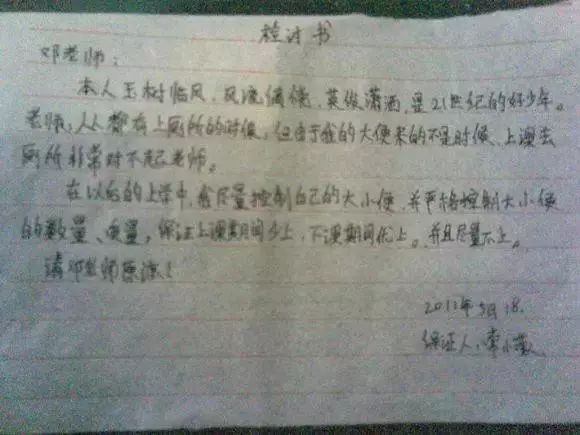 检讨书
邓老师：
本人玉树临风、风流倜傥、英俊潇洒，是21世纪的好少年。
老师，人人都有上厕所的时候，但由于我的大便来的不是时候，上课去
厕所非常对不起老师。
在以后的上学中，我尽量控制自己的大小便，并严格控制大小便
的数量、质量，保证上课期间少上，下课期间优上。并且尽量不上。
请邓老师原谅！
2011年5月18.
保证人：李小